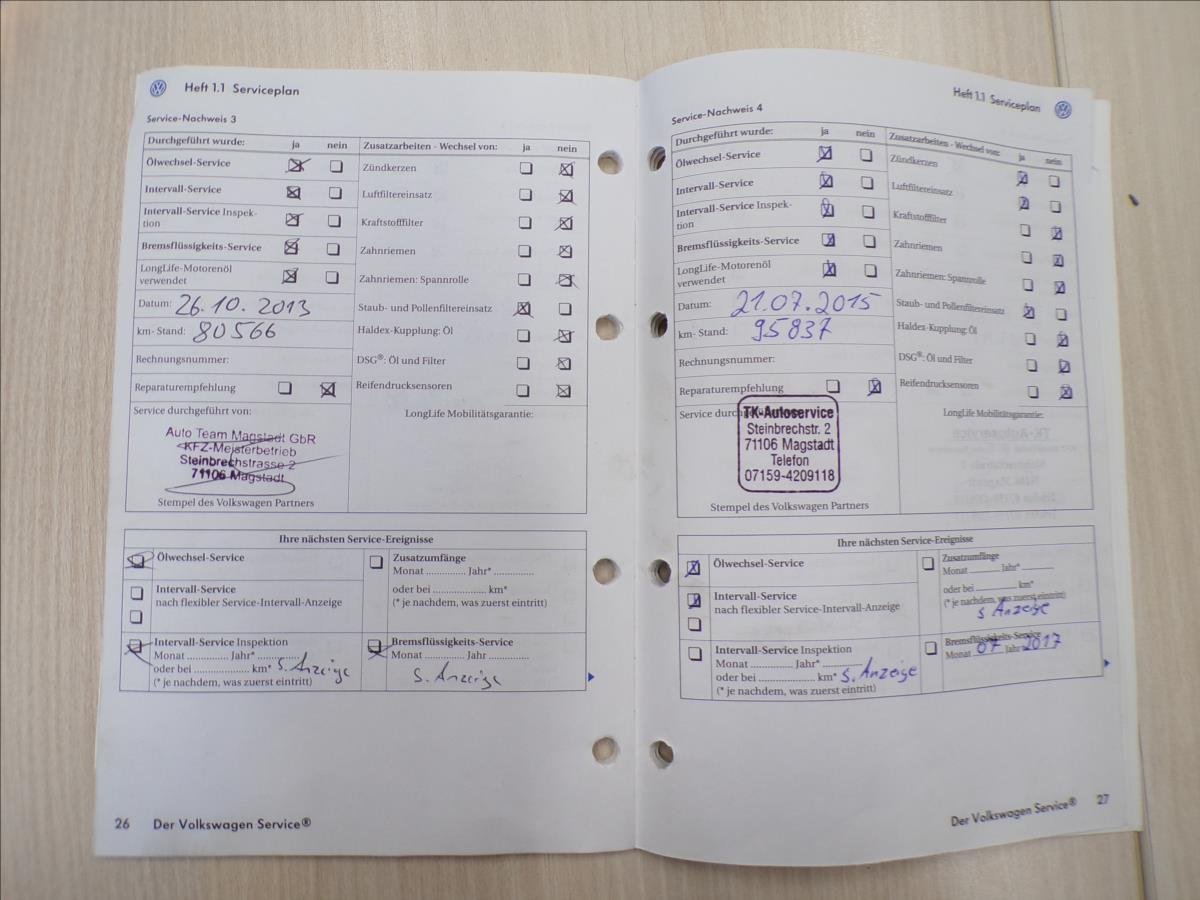 Heft 1.1 Serviceplan
Service-Nachweis 3
Durchgeführt wurde: ja nein
Ölwechsel-Service
Intervall-Service
Intervall-Service Inspek-
tion
Bremsflüssigkeits-Service
LongLife-Motorenöl
verwendet
Datum: 26.10.2013
km-Stand: 80566
Rechnungsnummer:
Reparaturempfehlung
Service durchgeführt von:
Auto Team Magstadt GbR
KFZ-Meisterbetrieb
Steinbrechstrasse 2
71106 Magstadt
Stempel des Volkswagen Partners
Zusatzarbeiten - Wechsel von: ja nein
Zündkerzen
Luftfiltereinsatz
Kraftstofffilter
Zahnriemen
Zahnriemen: Spannrolle
Staub- und Pollenfiltereinsatz
Haldex-Kupplung: Öl
DSG®: Öl und Filter
Reifendrucksensoren
LongLife Mobilitätsgarantie:
Ihre nächsten Service-Ereignisse
Ölwechsel-Service
Intervall-Service
nach flexibler Service-Intervall-Anzeige
Intervall-Service Inspektion
Monat ............... Jahr* ...............
oder bei ..................... km* S. Anzeige
(* je nachdem, was zuerst eintritt)
Zusatzumfänge
Monat ............... Jahr* ...............
oder bei ..................... km*
(* je nachdem, was zuerst eintritt)
Bremsflüssigkeits-Service
Monat ............... Jahr ...............
S. Anzeige
26 Der Volkswagen Service®
Heft 1.1 Serviceplan
Service-Nachweis 4
Durchgeführt wurde: ja nein
Ölwechsel-Service
Intervall-Service
Intervall-Service Inspek-
tion
Bremsflüssigkeits-Service
LongLife-Motorenöl
verwendet
Datum: 21.07.2015
km-Stand: 95837
Rechnungsnummer:
Reparaturempfehlung
Service durchgeführt
TK-Autoservice
Steinbrechstr. 2
71106 Magstadt
Telefon
07159-4209118
Stempel des Volkswagen Partners
Zusatzarbeiten - Wechsel von: ja nein
Zündkerzen
Luftfiltereinsatz
Kraftstofffilter
Zahnriemen
Zahnriemen: Spannrolle
Staub- und Pollenfiltereinsatz
Haldex-Kupplung: Öl
DSG®: Öl und Filter
Reifendrucksensoren
LongLife Mobilitätsgarantie:
Ihre nächsten Service-Ereignisse
Ölwechsel-Service
Intervall-Service
nach flexibler Service-Intervall-Anzeige
Intervall-Service Inspektion
Monat ............... Jahr* ...............
oder bei ..................... km* S. Anzeige
(* je nachdem, was zuerst eintritt)
Zusatzumfänge
Monat ............... Jahr* ...............
oder bei ..................... km*
(* je nachdem, was zuerst eintritt)
S Anzeige
Bremsflüssigkeits-Service
Monat 07 Jahr 2017
Der Volkswagen Service® 27